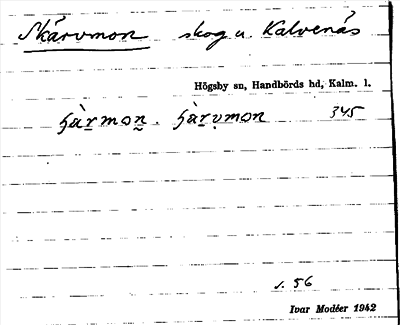 Skärvmon skog u. Kalvenäs
Högsby sn, Handbörds hd, Kalm. l.
ʃàr̲mon̲̰. ʃàr̲v̥mon 345
s. 56
Ivar Modéer 1942